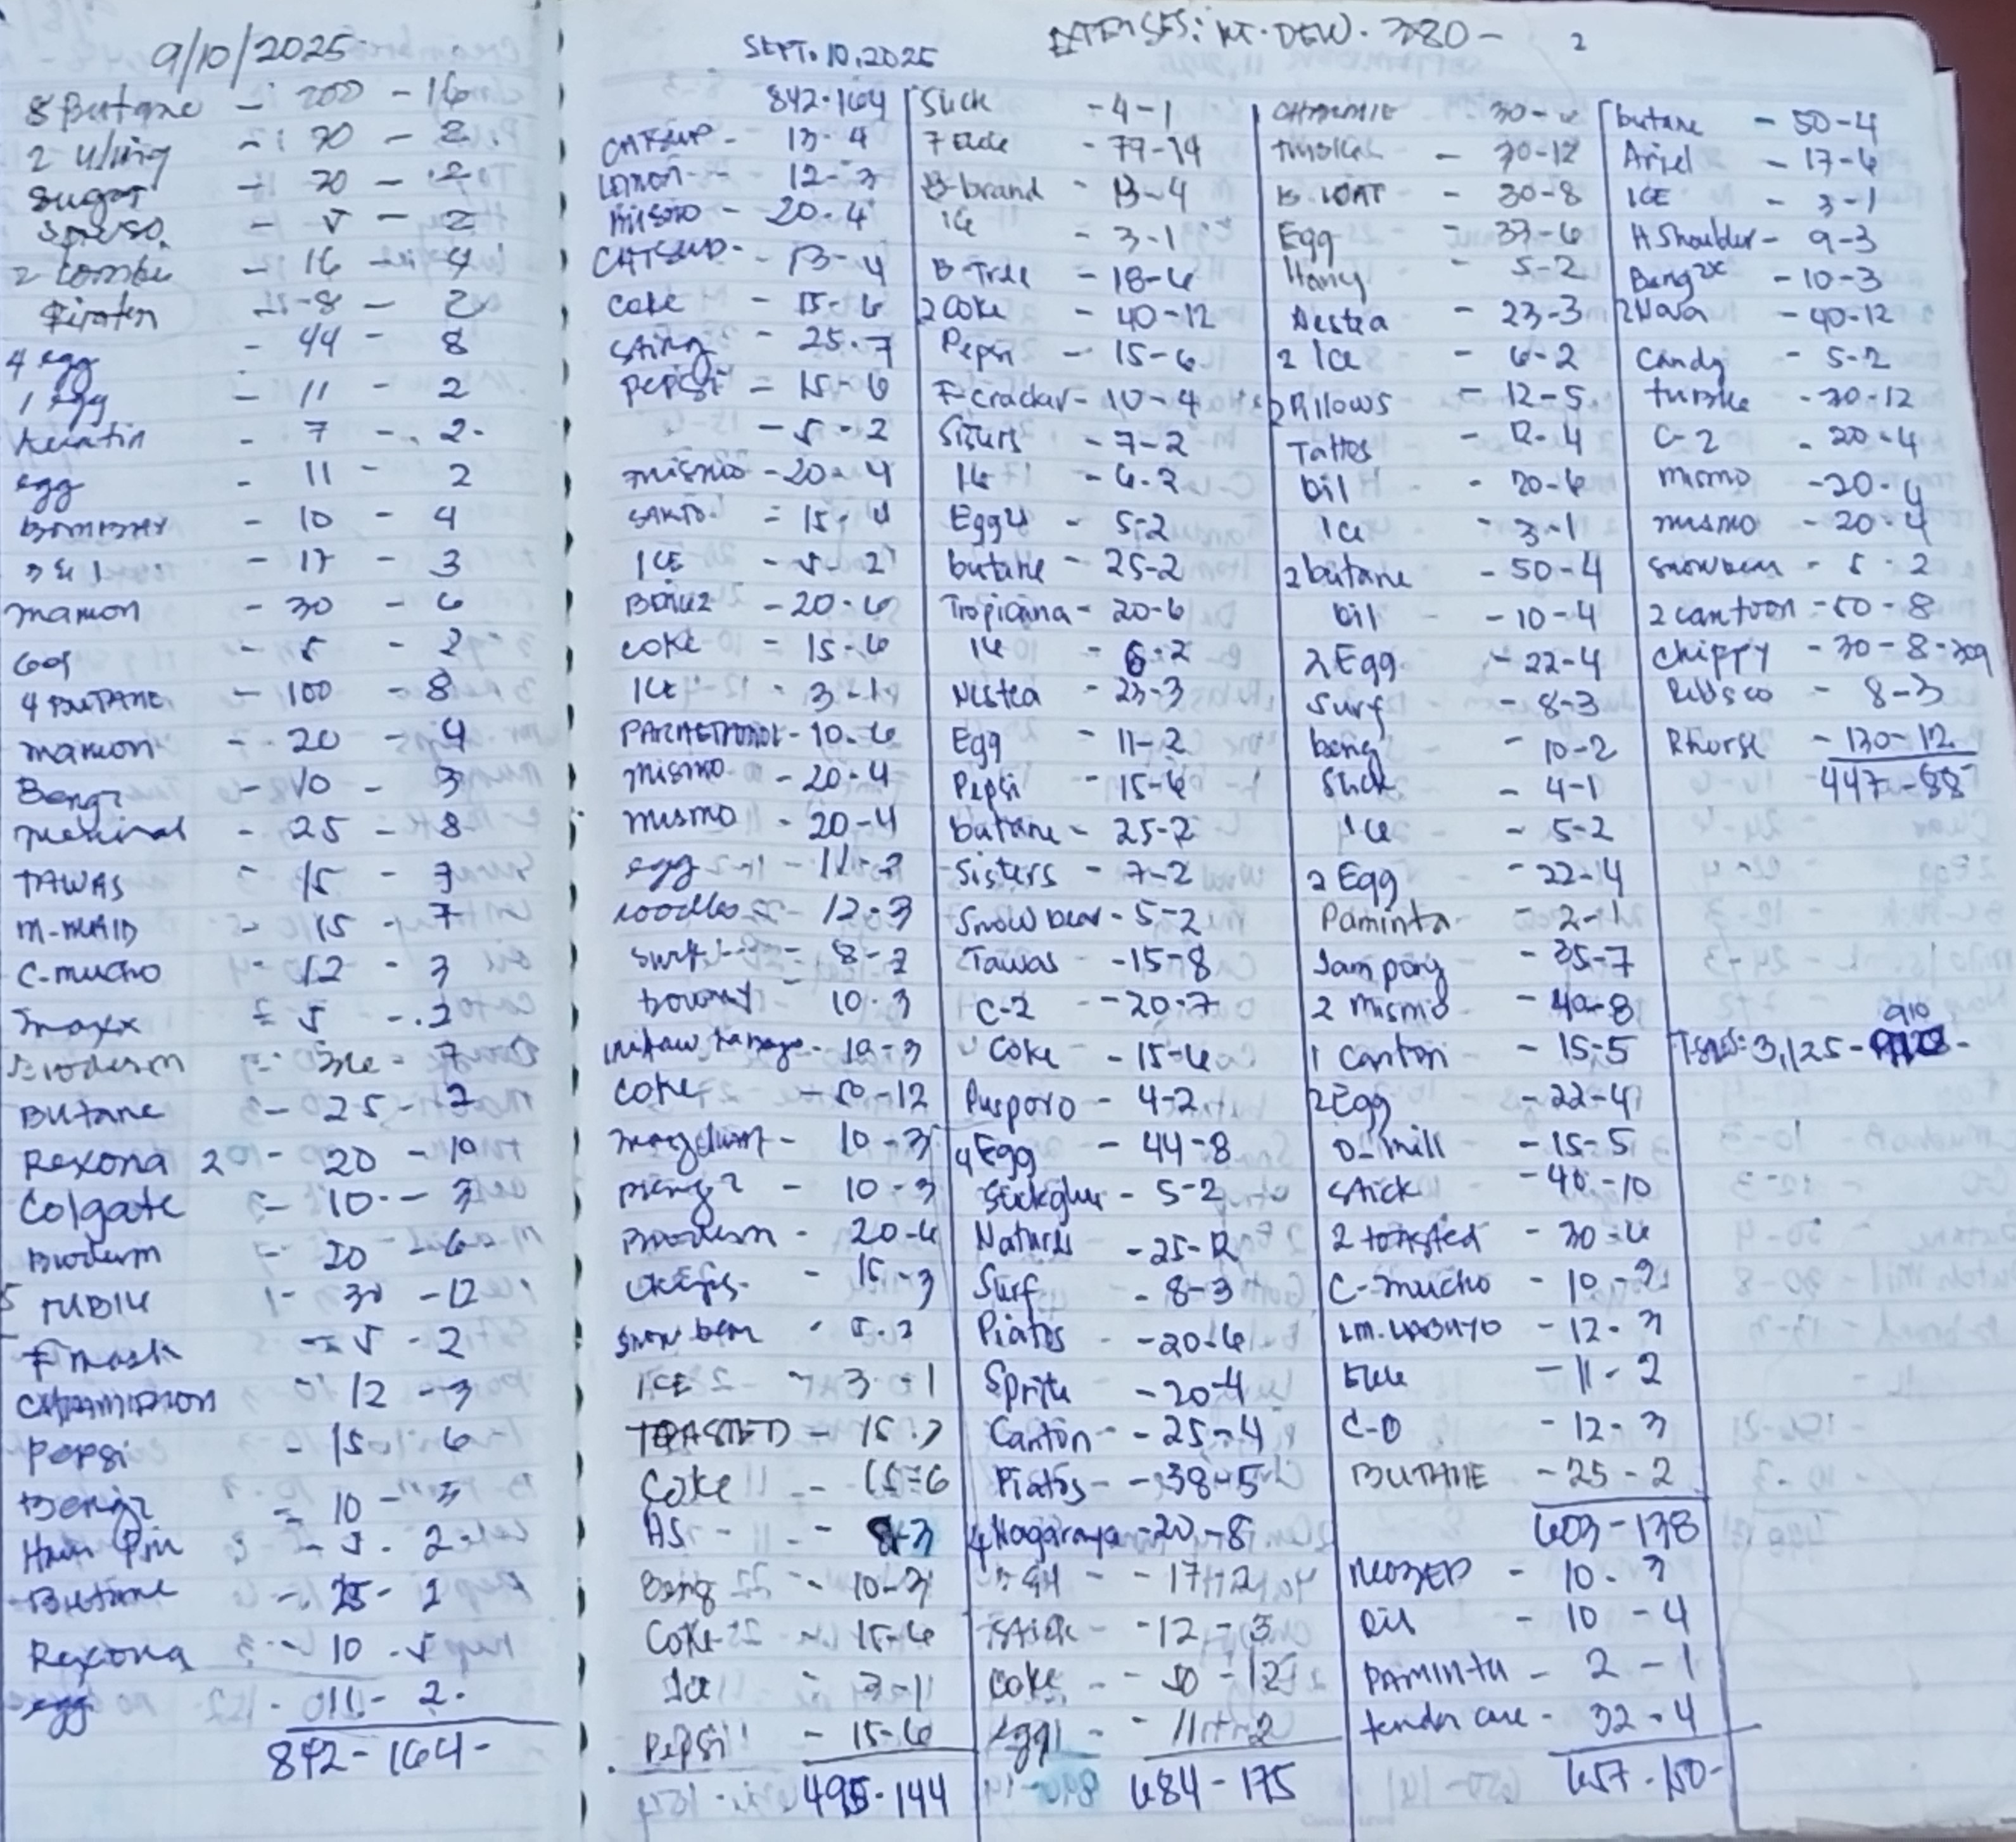 9/10/2025
8 Butane - 200 - 16
2 Uling - 70 - 2.
Sugar - 20 - 2
- 5 - 2
2 combi - 16 - 4
- 8 - 2
4 egg - 44 - 8
1 egg - 11 - 2
Keratin - 7 - 2-
egg - 11 - 2
- 10 - 4
3 in 1 - 17 - 3
mamon - 30 - 6
- 5 - 2
4 BUTANE - 100 - 8
mamon - 20 - 4
Beng2 - 10 - 3
- 25 - 8
TAWAS - 15 - 7
M-MAID - 15 - 7
C-mucho - 12 - 3
maxx - 5 - 2
Bioderm - 36 - 7
Butane - 25 - 2
Rexona 20 - 20 - 10
Colgate - 10 - 3
Bioderm - 20 - 6
- 30 - 12
F mask - 5 - 2
CHAMPION - 12 - 3
Pepsi - 15 - 6
Beng2 - 10 - 3
Hair Pin - 5 - 2
Butane - 25 - 2
Rexona - 10 - 5
egg - 11 - 2.
842 - 164 -
SEPT. 10, 2025
842-164
CATSUP - 13-4
- 12-3
mismo - 20-4
CATSUP - 13-4
coke - 15-6
sting - 25-7
pepsi - 15-6
- 5-2
mismo - 20-4
- 15-4
ICE - 5-2
- 20-6
coke - 15-6
ICE - 3-1
PARACETAMOL - 10-6
mismo - 20-4
mismo - 20-4
egg - 11-2
noodles - 12-3
surf - 8-2
downy - 10-3
- 10-3
coke - 50-12
magchum - 10-3
beng2 - 10-3
Bioderm - 20-6
- 15-3
snow bear - 5-2
ICE - 3-1
TOASTED - 15-3
Coke - 15-6
AS - 8-3
Beng - 10-3
Coke - 15-6
Ice - 3-1
Pepsi - 15-6
495-144
EXPENSES: MT. DEW - 380 - 2
Stick - 4-1
- 79-14
B-brand - 13-4
Ice - 3-1
B-Tree - 18-6
2 Coke - 40-12
Pepsi - 15-6
F-cracker - 10-4
Sisters - 7-2
Ice - 6-2
- 5-2
butane - 25-2
Tropicana - 20-6
Ice - 6-2
Nestea - 23-3
Egg - 11-2
Pepsi - 15-6
butane - 25-2
Sisters - 7-2
Snowbear - 5-2
Tawas - 15-8
C-2 - 20-7
Coke - 15-6
Pusporo - 4-2
4 Egg - 44-8
- 5-2
Natures - 25-12
Surf - 8-3
Piatos - 20-6
Sprite - 20-4
Canton - 25-4
Piatos - 38-5
4 Nagaraya - 20-8
- 17-2
Stick - 12-3
coke - 50-12
egg - 11-2
684-175
30-6
- 30-12
- 30-8
Egg - 33-6
Hany - 5-2
Nestea - 23-3
2 Ice - 6-2
2 Pillows - 12-5
Tattos - 12-4
Oil - 20-6
Ice - 3-1
2 butane - 50-4
Oil - 10-4
2 Egg - 22-4
Surf - 8-3
beng - 10-2
Stick - 4-1
Ice - 5-2
2 Egg - 22-4
Paminta - 2-1
Jampong - 35-7
2 Mismo - 40-8
1 Canton - 15-5
2 Egg - 22-4
D-mill - 15-5
Stick - 40-10
2 toasted - 30-6
C-mucho - 10-3
- 12-3
- 11-2
C-O - 12-3
BUTANE - 25-2
603-138
NEOZEP - 10-3
Oil - 10-4
PAMINTA - 2-1
tender care - 32-4
657-150-
butane - 50-4
Ariel - 17-6
ICE - 3-1
H Shoulder - 9-3
Beng2x - 10-3
2 Nova - 40-12
Candy - 5-2
- 30-12
C-2 - 20-4
mismo - 20-4
mismo - 20-4
snowbear - 5-2
2 cantoon - 50-8
Chippy - 30-8
Rebisco - 8-3
Rhorse - 130-12
447-88
910
3,125 -